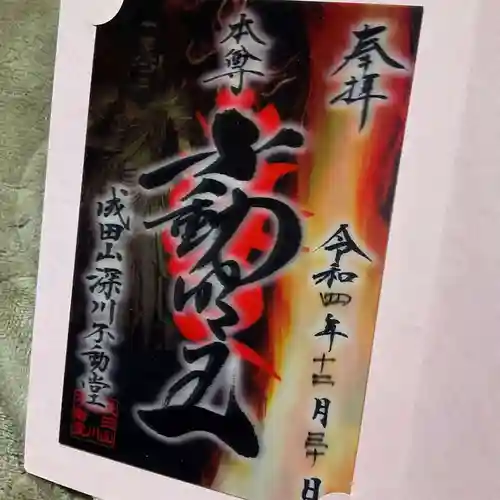 奉拝
令和四年十二月三十日
本尊
不動明王
成田山深川不動堂